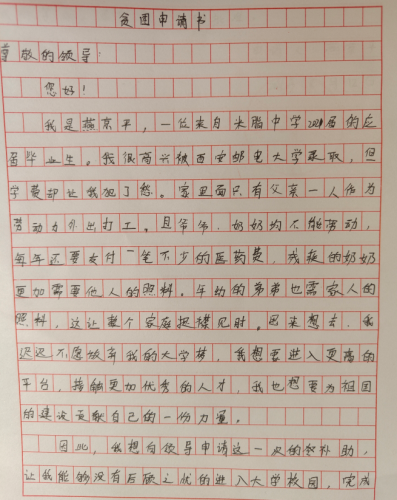 贫困申请书
尊敬的领导:
您好!
我是薛京平,一位来自米脂中学2021届的应
届毕业生。我很高兴被西安邮电大学录取,但
学费却让我犯了愁。家里面只有父亲一人作为
劳动力外出打工。且爷爷、奶奶均不能劳动,
每年还要支付一笔不少的医药费,残疾的奶奶
更加需要他人的照料。年幼的弟弟也需家人的
照料,这让整个家庭捉襟见肘。思来想去,我
迟迟不愿放弃我的大学梦,我想要进入更高的
平台,接触更加优秀的人才,我也想要为祖国
的建设贡献自己的一份力量。
因此,我想向领导申请这一次的补助,
让我能够没有后顾之忧的进入大学校园,完成